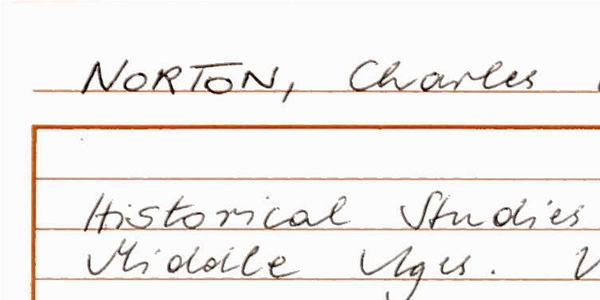 NORTON, Charles
Historical Studies
Middle Ages.